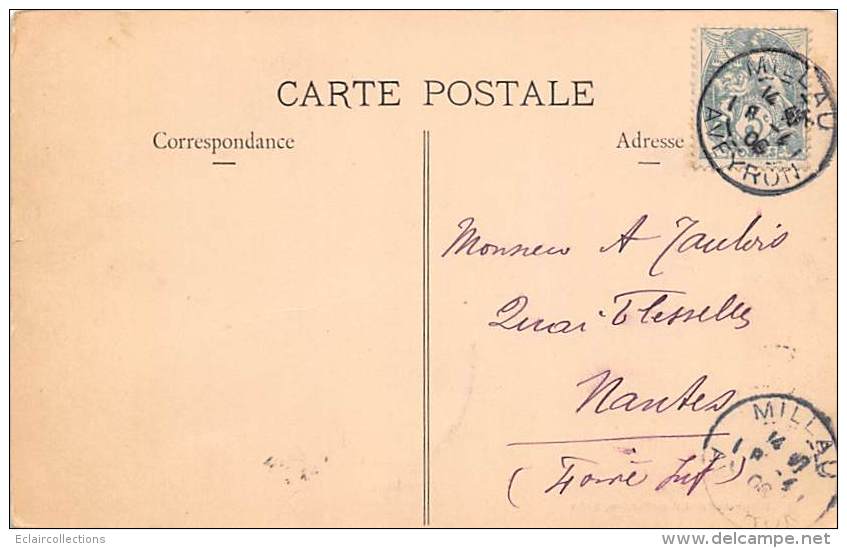 CARTE POSTALE
Correspondance
Adresse
MILLAU
AVEYRON
Monsieur A Jaulois
Quai Flesselles
Nantes
(Loire Inf)
MILLAU
Eclaircollections
www.delcampe.net